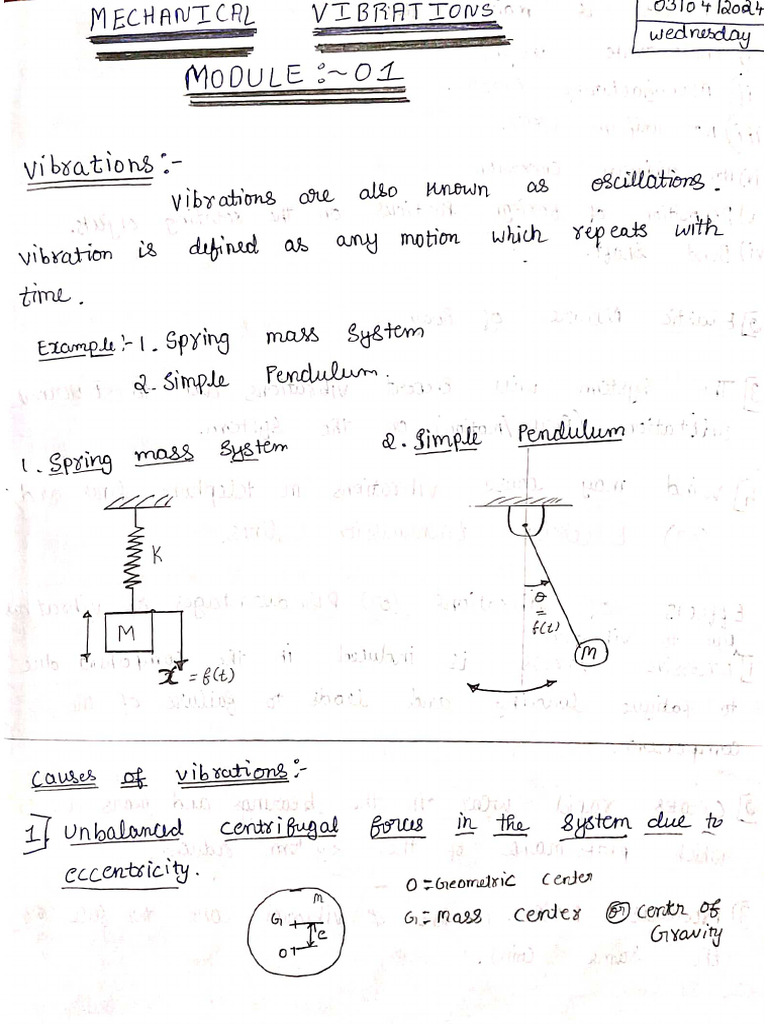 MECHANICAL VIBRATIONS
03/04/2024
wednesday
MODULE:~01
Vibrations:-
Vibrations are also known as oscillations.
vibration is defined as any motion which repeats with
time.
Example:- 1. Spring mass system
2. Simple Pendulum.
1. Spring mass system
2. Simple Pendulum
K
M
x = f(t)
θ
=
f(t)
m
Causes of vibrations:-
1] Unbalanced centrifugal forces in the system due to
eccentricity.
m
G
e
O
O = Geometric center
G = Mass center or centr of
Gravity